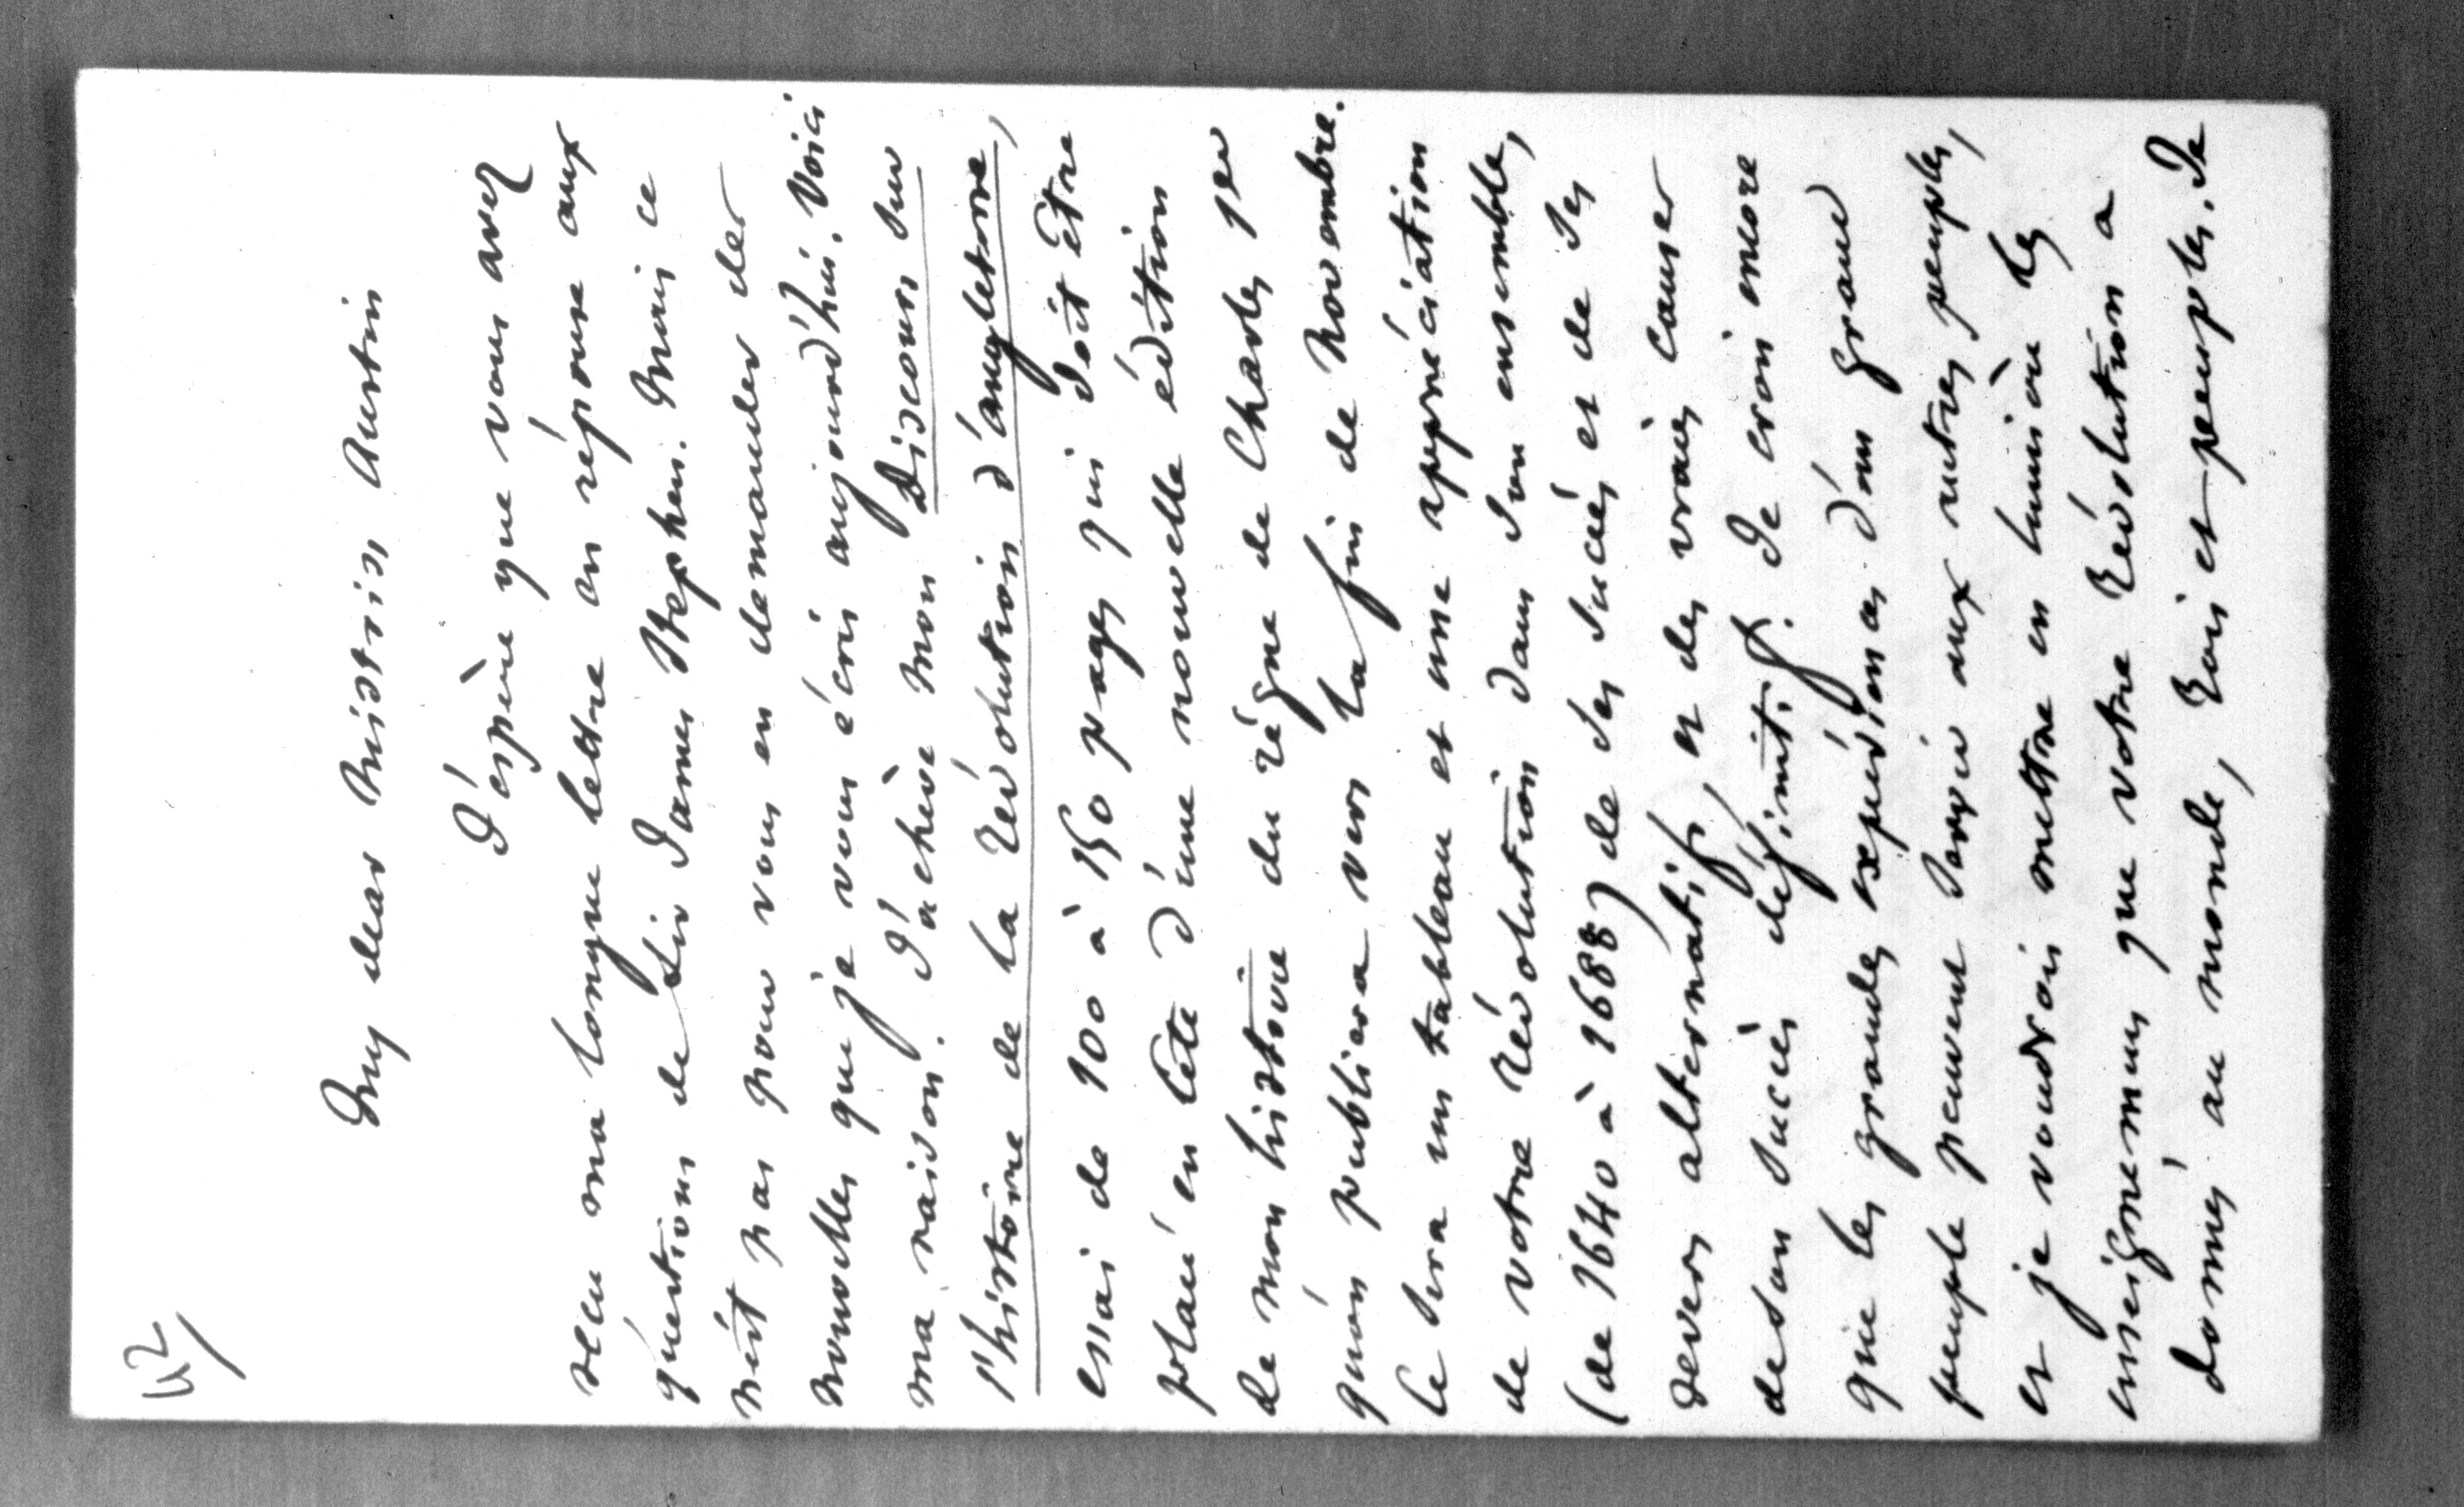 42
My dear Mistriss Austin
J'espère que vous avez
reçu ma longue lettre en réponse aux
questions de Sir James Stephen. Mais ce
n'est pas pour vous en demander des
nouvelles que je vous écris aujourd'hui. Voici
ma raison. J'achève mon Discours sur
l'histoire de la Révolution d'angleterre,
essai de 100 à 150 pages qui doit être
placé en tête d'une nouvelle édition
de mon histoire du règne de Charles 1er
qu'on publiera vers la fin de Novembre.
Ce sera un tableau et une appréciation
de votre Révolution dans son ensemble,
(de 1640 à 1688) de ses succès et de ses
revers alternatifs, et des vraies causes
de son succès définitif. Je crois encore
que les grandes expériences d'un grand
peuple peuvent servir aux autres peuples,
et je voudrois mettre en lumière les
enseignemens que votre Révolution a
donnés, au monde, Rois et peuples. Je